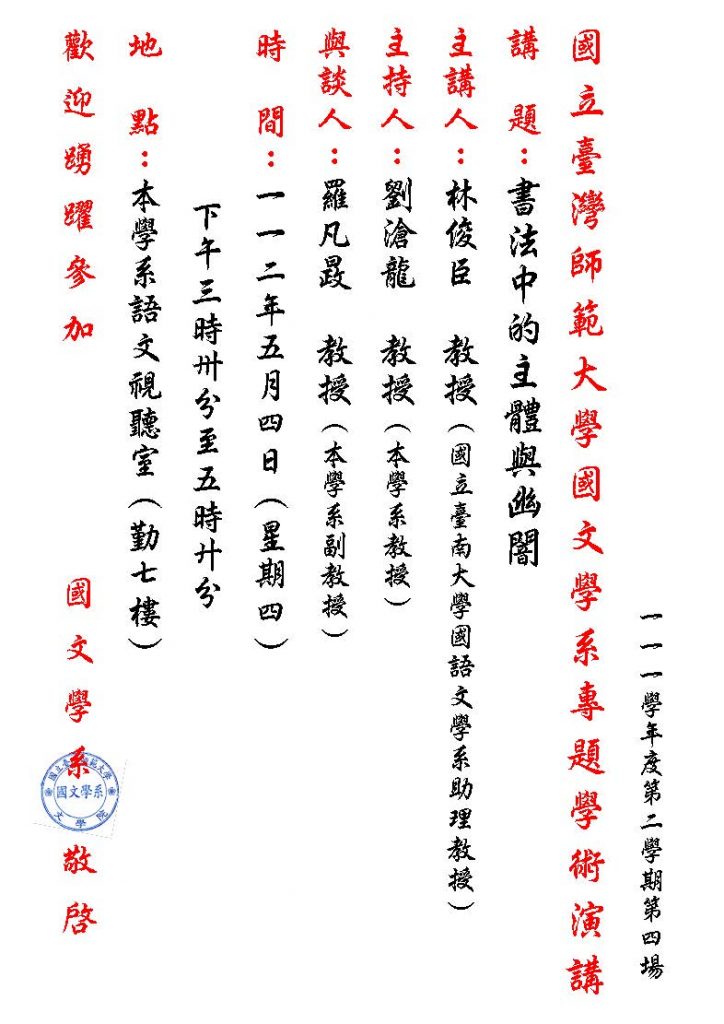 一一一學年度第二學期第四場
國立臺灣師範大學國文學系專題學術演講
講題：書法中的主體與幽闇
主講人：林俊臣 教授（國立臺南大學國語文學系助理教授）
主持人：劉滄龍 教授（本學系教授）
與談人：羅凡晸 教授（本學系副教授）
時間：一一二年五月四日（星期四）
下午三時卅分至五時廿分
地點：本學系語文視聽室（勤七樓）
歡迎踴躍參加 國文學系 敬啓
國文學系
文學院